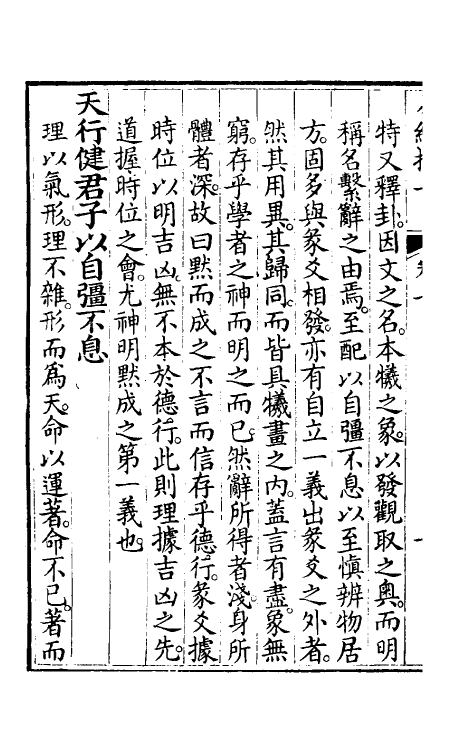 特又釋卦因文之名本犧之象以發觀取之奧而明
稱名繫辭之由焉至配以自彊不息以至慎辨物居
方固多與彖爻相發亦有自立一義出彖爻之外者
然其用異其歸同而皆具犧畫之内蓋言有盡象無
窮存乎學者之神而明之而已然辭所得者淺身所
體者深故曰默而成之不言而信存乎德行彖爻據
時位以明吉凶無不本於德行此則理據吉凶之先
道握時位之會尤神明默成之第一義也
天行健君子以自彊不息
理以氣形理不雜形而爲天命以運著命不已著而